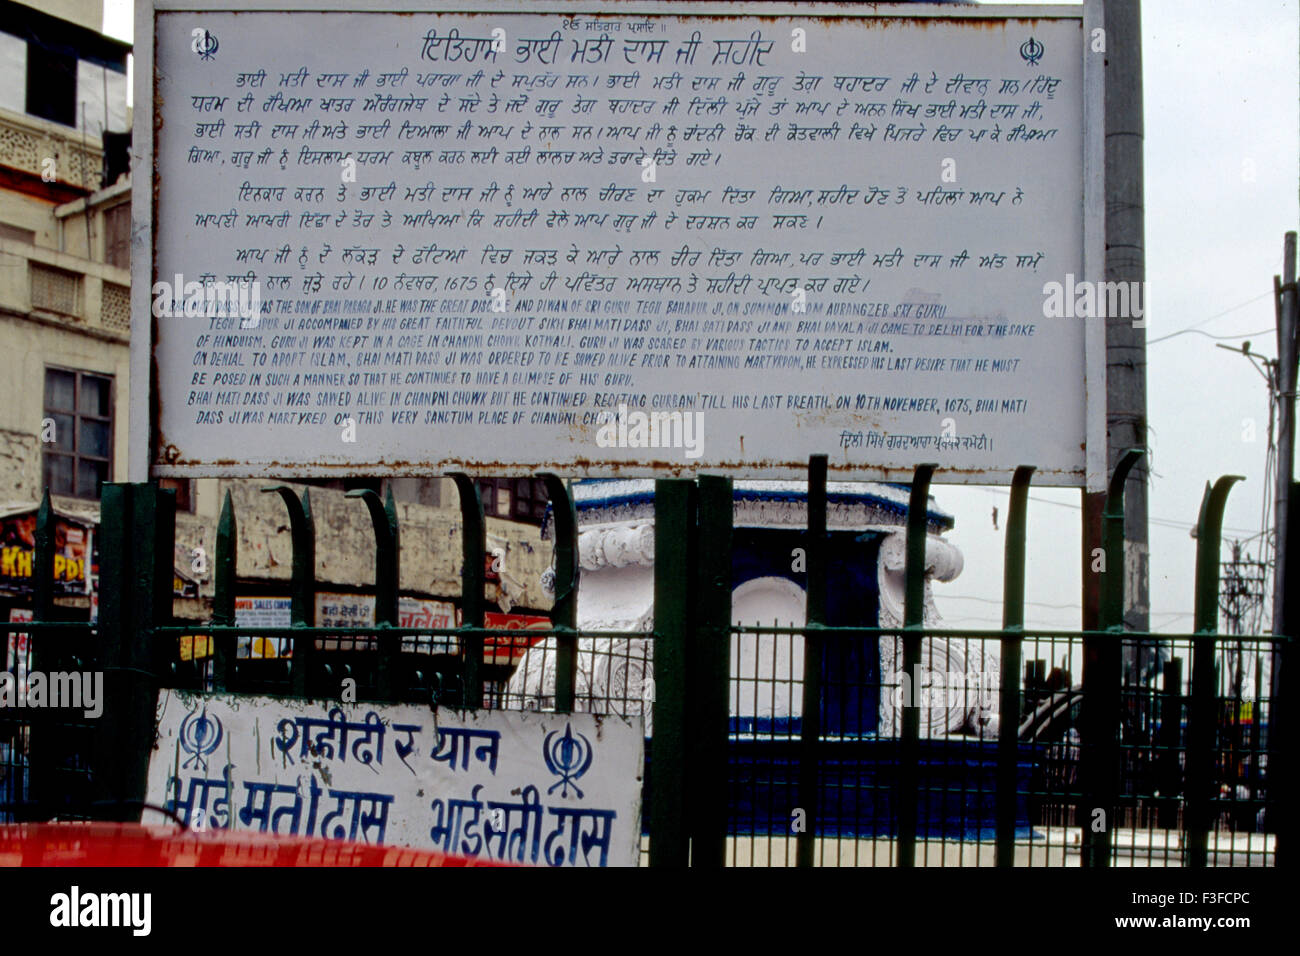 ੧ਓ ਸਤਿਗੁਰ ਪ੍ਰਸਾਦਿ ॥
ਇਤਿਹਾਸ ਭਾਈ ਮਤੀ ਦਾਸ ਜੀ ਸ਼ਹੀਦ
ਭਾਈ ਮਤੀ ਦਾਸ ਜੀ ਭਾਈ ਪਰਾਗਾ ਜੀ ਦੇ ਸਪੁਤੱਰ ਸਨ। ਭਾਈ ਮਤੀ ਦਾਸ ਜੀ ਗੁਰੂ ਤੇਗ਼ ਬਹਾਦਰ ਜੀ ਦੇ ਦੀਵਾਨ ਸਨ। ਹਿੰਦੂ
ਧਰਮ ਦੀ ਰੱਖਿਆ ਖਾਤਰ ਔਰੰਗਜ਼ੇਬ ਦੇ ਸੱਦੇ ਤੇ ਜਦੋਂ ਗੁਰੂ ਤੇਗ਼ ਬਹਾਦਰ ਜੀ ਦਿੱਲੀ ਪੁੱਜੇ ਤਾਂ ਆਪ ਦੇ ਅਨਨ ਸਿੱਖ ਭਾਈ ਮਤੀ ਦਾਸ ਜੀ,
ਭਾਈ ਸਤੀ ਦਾਸ ਜੀ ਅਤੇ ਭਾਈ ਦਿਆਲਾ ਜੀ ਆਪ ਦੇ ਨਾਲ ਸਨ। ਆਪ ਜੀ ਨੂੰ ਚਾਂਦਨੀ ਚੌਂਕ ਦੀ ਕੋਤਵਾਲੀ ਵਿਖੇ ਪਿੰਜਰੇ ਵਿਚ ਪਾ ਕੇ ਰੱਖਿਆ
ਗਿਆ, ਗੁਰੂ ਜੀ ਨੂੰ ਇਸਲਾਮ ਧਰਮ ਕਬੂਲ ਕਰਨ ਲਈ ਕਈ ਲਾਲਚ ਅਤੇ ਡਰਾਵੇ ਦਿੱਤੇ ਗਏ।
ਇਨਕਾਰ ਕਰਨ ਤੇ ਭਾਈ ਮਤੀ ਦਾਸ ਜੀ ਨੂੰ ਆਰੇ ਨਾਲ ਚੀਰਣ ਦਾ ਹੁਕਮ ਦਿੱਤਾ ਗਿਆ, ਸ਼ਹੀਦ ਹੋਣ ਤੋਂ ਪਹਿਲਾਂ ਆਪ ਨੇ
ਆਪਣੀ ਆਖਰੀ ਇੱਛਾ ਦੇ ਤੌਰ ਤੇ ਆਖਿਆ ਕਿ ਸ਼ਹੀਦੀ ਵੇਲੇ ਆਪ ਗੁਰੂ ਜੀ ਦੇ ਦਰਸ਼ਨ ਕਰ ਸਕਣ।
ਆਪ ਜੀ ਨੂੰ ਦੋ ਲੱਕੜ ਦੇ ਫੱਟਿਆਂ ਵਿਚ ਜਕੜ ਕੇ ਆਰੇ ਨਾਲ ਚੀਰ ਦਿੱਤਾ ਗਿਆ, ਪਰ ਭਾਈ ਮਤੀ ਦਾਸ ਜੀ ਅੰਤ ਸਮੇਂ
ਤੱਕ ਬਾਣੀ ਨਾਲ ਜੁੜੇ ਰਹੇ। 10 ਨੰਵਬਰ, 1675 ਨੂੰ ਇਸੇ ਹੀ ਪਵਿੱਤਰ ਅਸਥਾਨ ਤੇ ਸ਼ਹੀਦੀ ਪ੍ਰਾਪਤ ਕਰ ਗਏ।
BHAI MATI DASS JI WAS THE SON OF BHAI PARAGA JI. HE WAS THE GREAT DISCIPLE AND DIWAN OF SRI GURU TEGH BAHADUR JI, ON SUMMON FROM AURANGZEB SRI GURU
TEGH BAHADUR JI ACCOMPANIED BY HIS GREAT FAITHFUL DEVOUT SIKH BHAI MATI DASS JI, BHAI SATI DASS JI AND BHAI DAYALA JI CAME TO DELHI FOR THE SAKE
OF HINDUISM. GURU JI WAS KEPT IN A CAGE IN CHANDNI CHOWK KOTWALI. GURU JI WAS SCARED BY VARIOUS TACTICS TO ACCEPT ISLAM.
ON DENIAL TO ADOPT ISLAM, BHAI MATI DASS JI WAS ORDERED TO BE SAWED ALIVE PRIOR TO ATTAINING MARTYRDOM, HE EXPRESSED HIS LAST DESIRE THAT HE MUST
BE POSED IN SUCH A MANNER SO THAT HE CONTINUES TO HAVE A GLIMPSE OF HIS GURU.
BHAI MATI DASS JI WAS SAWED ALIVE IN CHANDNI CHOWK BUT HE CONTINUED RECITING GURBANI TILL HIS LAST BREATH. ON 10TH NOVEMBER, 1675, BHAI MATI
DASS JI WAS MARTYRED ON THIS VERY SANCTUM PLACE OF CHANDNI CHOWK.
ਦਿੱਲੀ ਸਿੱਖ ਗੁਰਦੁਆਰਾ ਪ੍ਰਬੰਧਕ ਕਮੇਟੀ।
SALES CORPO
शहीदी स्थान
भाई मती दास भाई सती दास
alamy
Image ID: F3FCPC
www.alamy.com